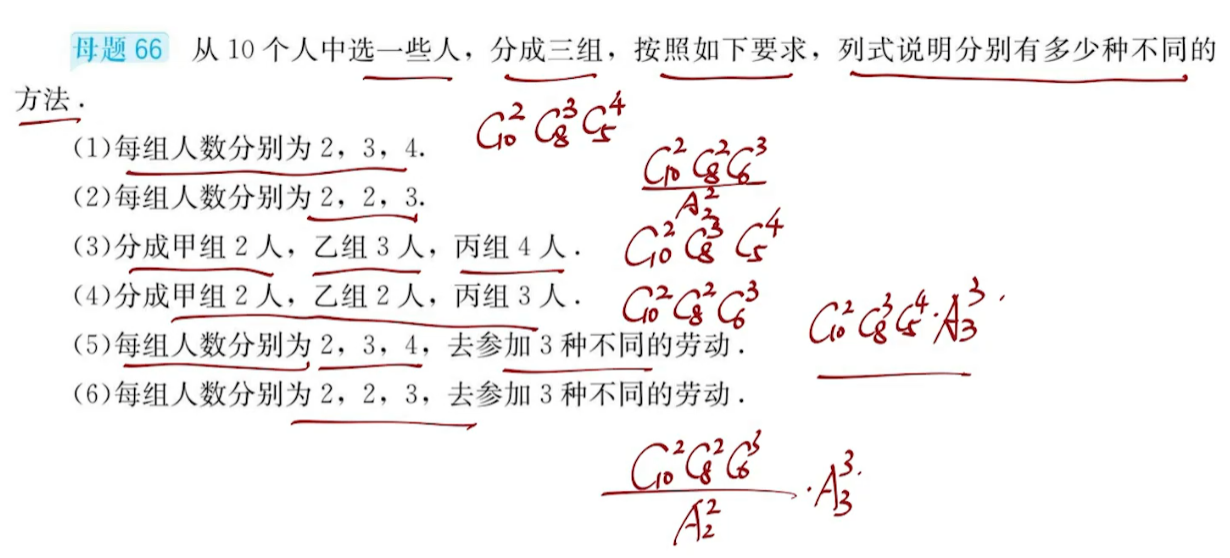 母题 66 从 10 个人中选一些人，分成三组，按照如下要求，列式说明分别有多少种不同的
方法．
(1)每组人数分别为 2，3，4. C₁₀² C₈³ C₅⁴
(2)每组人数分别为 2，2，3. C₁₀² C₈² C₆³ / A₂²
(3)分成甲组 2 人，乙组 3 人，丙组 4 人． C₁₀² C₈³ C₅⁴
(4)分成甲组 2 人，乙组 2 人，丙组 3 人． C₁₀² C₈² C₆³
(5)每组人数分别为 2，3，4，去参加 3 种不同的劳动． C₁₀² C₈³ C₅⁴·A₃³.
(6)每组人数分别为 2，2，3，去参加 3 种不同的劳动．
C₁₀² C₈² C₆³ / A₂² ·A₃³.